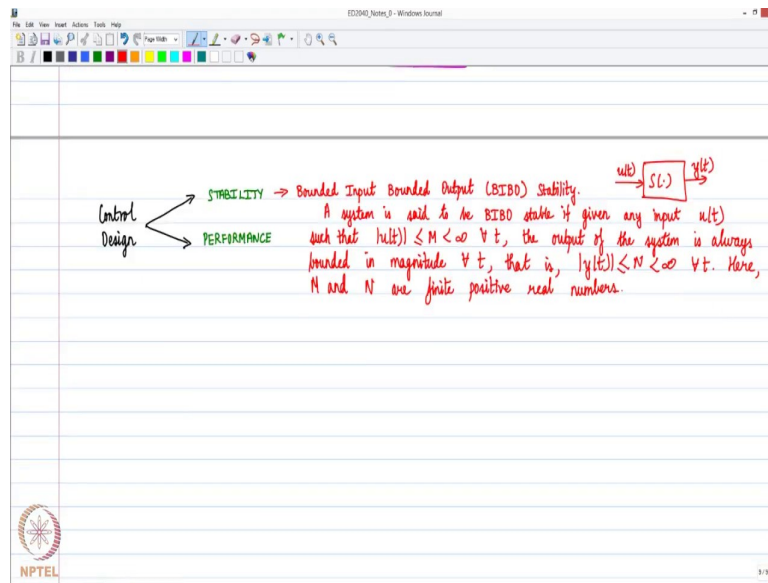 ED2040_Notes_0 - Windows Journal
File Edit View Insert Actions Tools Help
Page Width
B I
Control
Design
STABILITY → Bounded Input Bounded Output (BIBO) Stability.
PERFORMANCE
u(t) S(.) y(t)
A system is said to be BIBO stable if given any input u(t)
such that |u(t)| ≤ M < ∞ ∀ t, the output of the system is always
bounded in magnitude ∀ t, that is, |y(t)| ≤ N < ∞ ∀ t. Here,
M and N are finite positive real numbers.
NPTEL